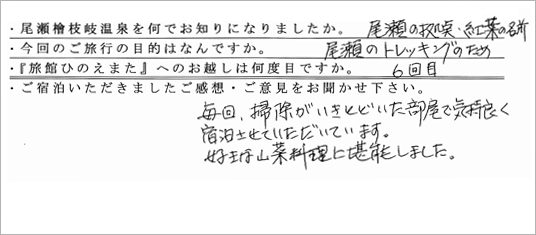 ・尾瀬檜枝岐温泉を何でお知りになりましたか。 尾瀬の 紅葉の名所
・今回のご旅行の目的はなんですか。 尾瀬のトレッキングのため
・『旅館ひのえまた』へのお越しは何度目ですか。 6回目
・ご宿泊いただきましたご感想・ご意見をお聞かせ下さい。
毎回、掃除がいきとどいた部屋で気持良く
宿泊させていただいています。
好きな山菜料理に堪能しました。